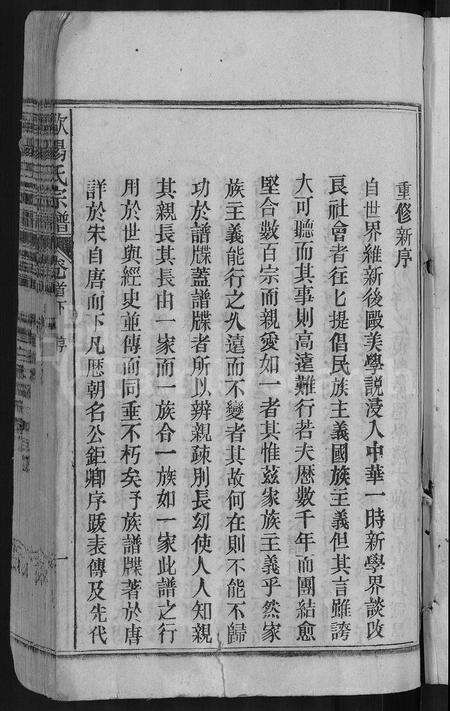 重修新序
自世界維新後毆美學說浸入中華一時新學界談改
良社會者往匕提倡民族主義國族主義但其言雖誇
大可聽而其事則高遠難行若夫歷數千年而團結愈
堅合數百宗而親愛如一者其惟茲家族主義乎然家
族主義能行之久遠而不變者其故何在則不能不歸
功於譜牒蓋譜牒者所以辨親疎別長幼使人人知親
其親長其長由一家而一族合一族如一家此譜之行
用於世與經史並傳而同垂不朽矣予族譜牒著於唐
詳於宋自唐而下凡歷朝名公鉅卿序跋表傳及先代
歐陽氏宗譜 卷首下 序 一